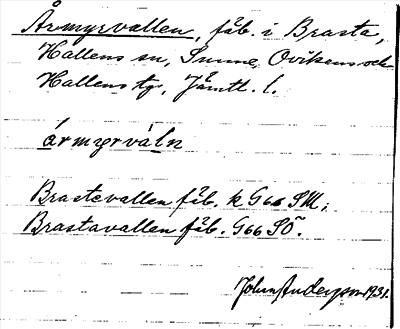 Årmyrvallen, fäb. i Brasta,
Hallens sn, Sunne, Ovikens och
Hallens tg, Jämtl. l.
årmyrváln
Brastevallen fäb. k G66 SM;
Brastavallen fäb. G66 SÖ.
John Anderson 1931.